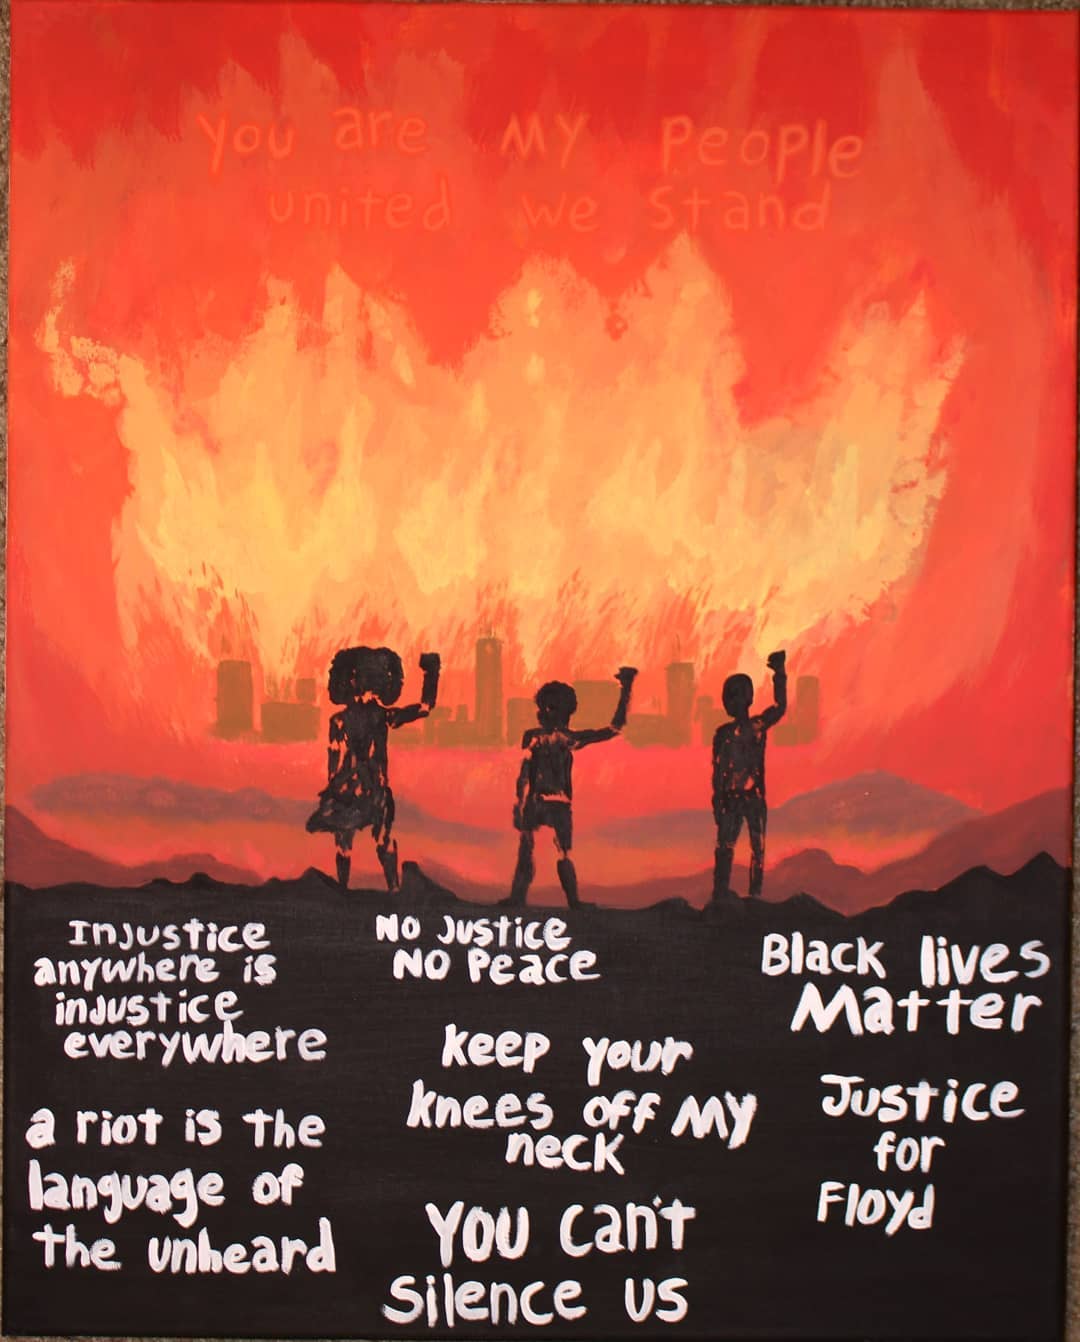 You are My People
united we stand
InJustice
anywhere is
inJustice
everywhere
a riot is the
language of
the unheard
No Justice
No Peace
keep your
knees off My
neck
You can't
Silence us
Black lives
Matter
Justice
for
Floyd